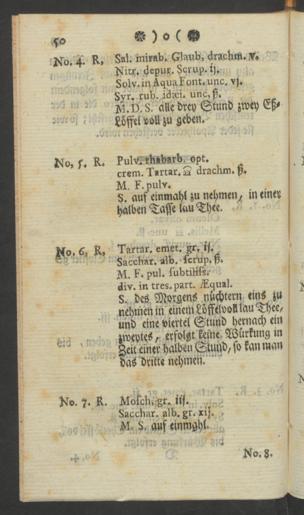 50 ❁ ) o ( ❁
No. 4. R. Sal. mirab. Glaub. drachm. v.
Nitr. depur. Scrup. ij.
Solv. in Aqua Font. unc. vj.
Syr. rub. idæi. unc. ß.
M. D. S. alle drey Stund zwey Eß-
Löffel voll zu geben.
No. 5. R. Pulv. rhabarb. opt.
crem. Tartar. a͞a drachm. ß.
M. F. pulv.
S. auf einmahl zu nehmen, in einer
halben Tasse lau Thee.
No. 6. R. Tartar. emet. gr. iſ.
Sacchar. alb. scrup. ß.
M. F. pul. subtiliss.
div. in tres. part. Æqual.
S. des Morgens nüchtern eins zu
nehmen in einem Löffelvoll lau Thee,
und eine viertel Stund hernach ein
zweytes, erfolgt keine Würkung in
Zeit einer halben Stund, so kan man
das dritte nehmen.
No. 7. R. Mosch. gr. iij.
Sacchar. alb. gr. xij.
M. S. auf einmahl.
No. 8.